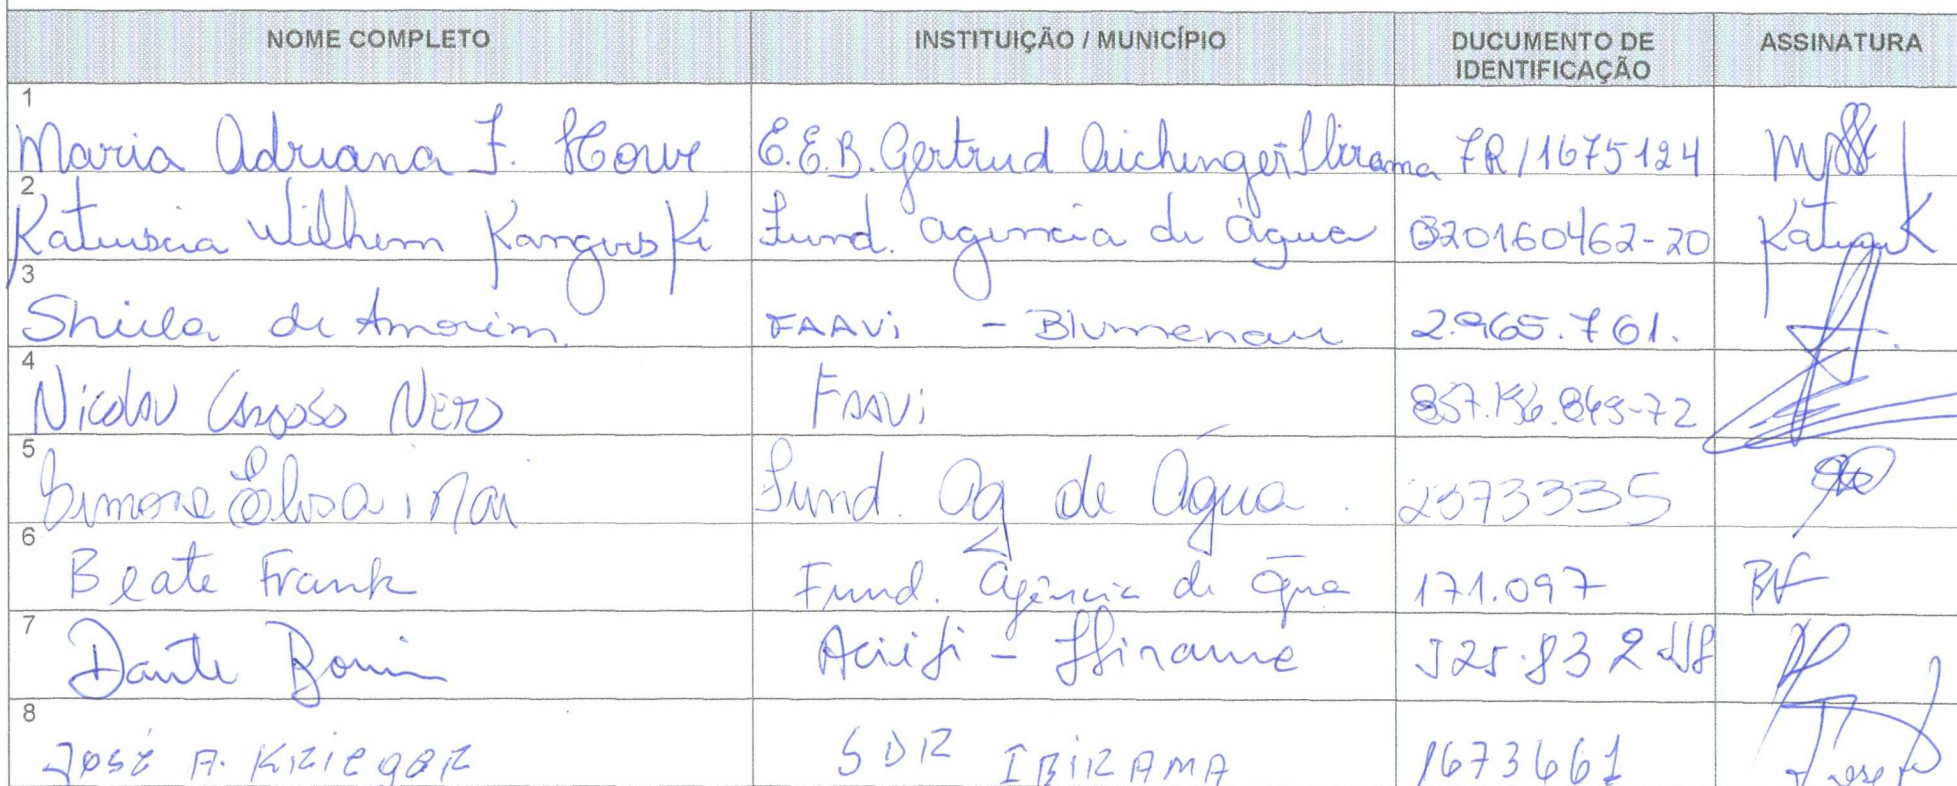 NOME COMPLETO INSTITUIÇÃO / MUNICÍPIO DUCUMENTO DE IDENTIFICAÇÃO ASSINATURA
1 Maria Adriana F. E.E.B. Gertrud Aichinger Ibirama 7R/1675124
2 Katiuscia Wilhem Kanguski Fund. agencia de água 020160462-20
3 Shiila de Amorim. FAAVi - Blumenau 2.965.761.
4 Nicolau Cardoso Neto FAAVi
5 Simone Fund. Ag de Água. 2373335
6 Beate Frank Fund. Agência de Água 171.097 BF
7 Dante Bonin - Ibirama
8 José A. KRIEGER SDR IBIRAMA 1673661